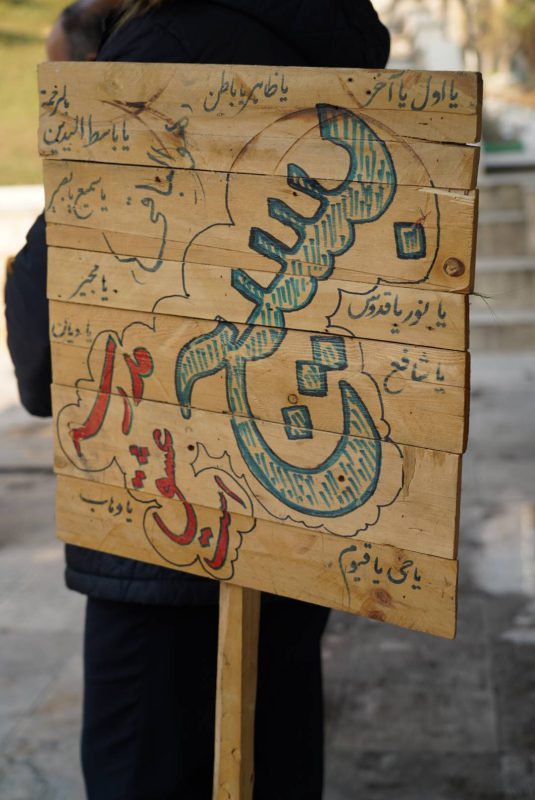 یا اول یا آخر
یا ظاهر یا باطن
یا باسط الیدین
بالرحمة
هو الباقی
یا سمیع یا بصیر
یا نور یا قدوس
یا مجیر
یا شافع
یا دیان
بسیج
مدرسه
عشق
است
یا وهاب
یا حی یا قیوم